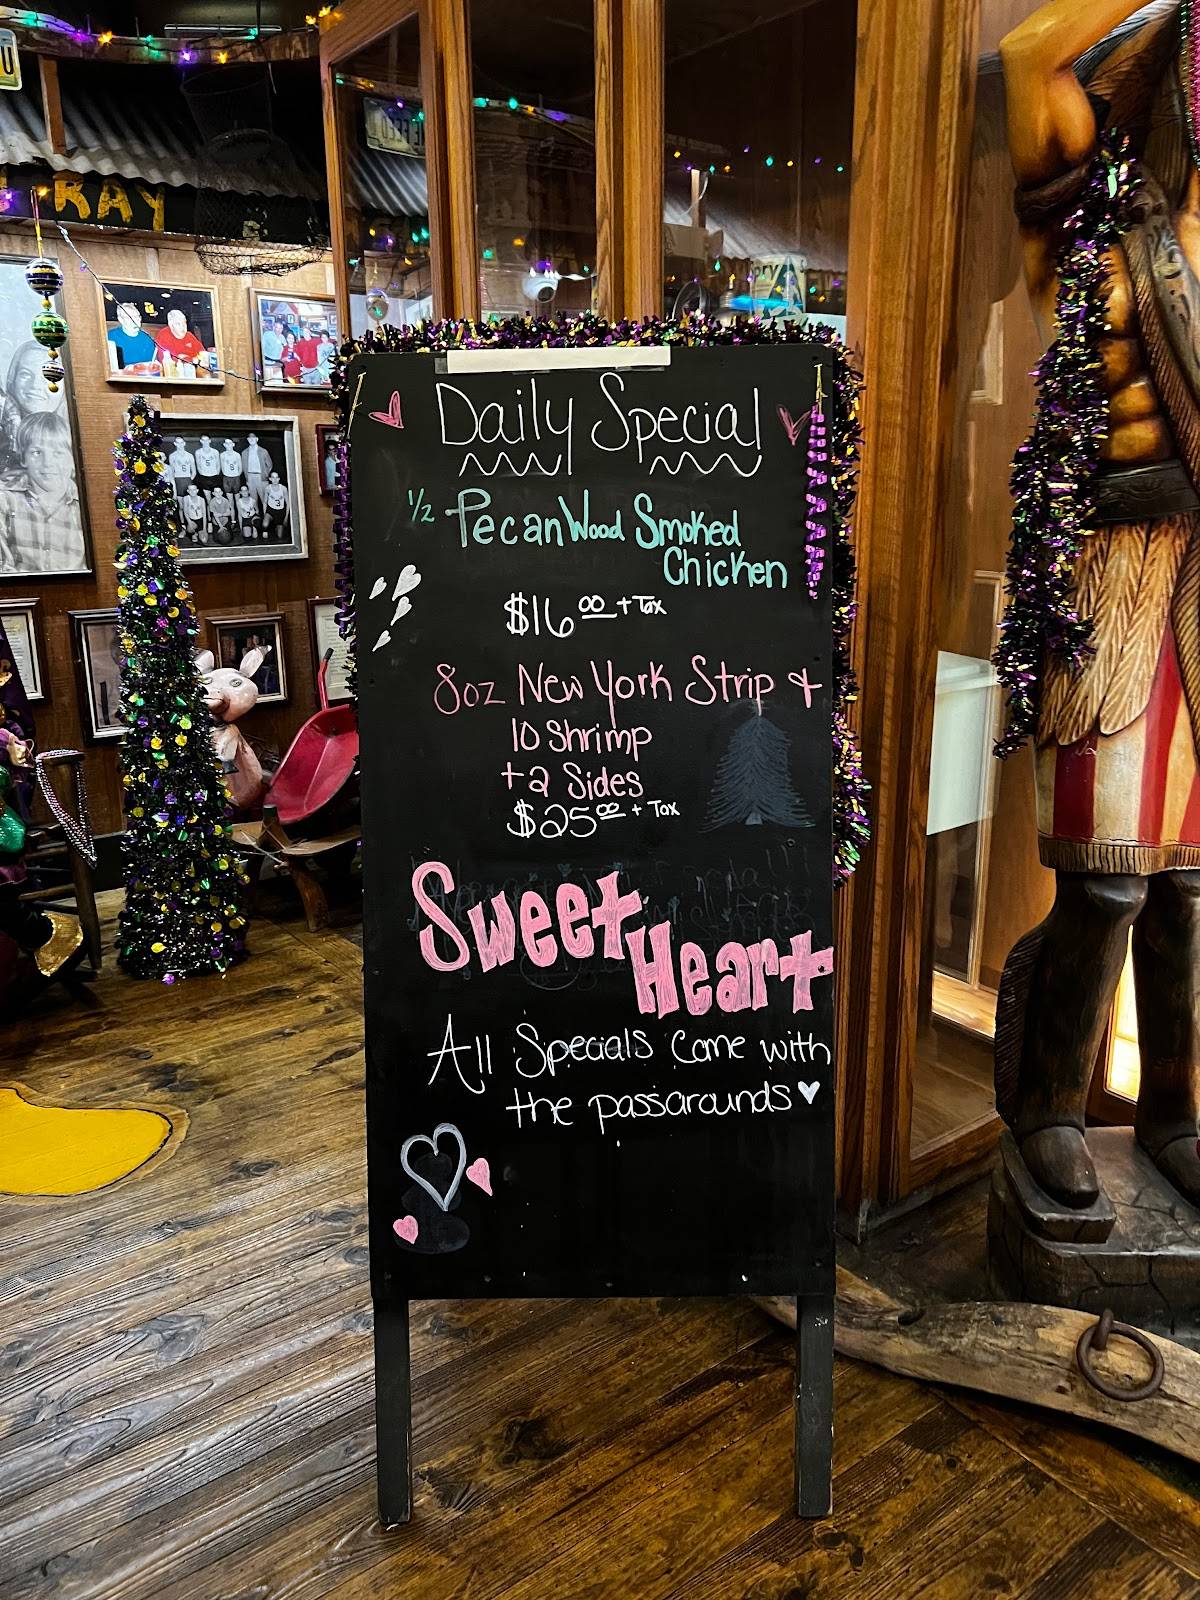 RAY
Daily Special
1/2 Pecan Wood Smoked
Chicken
$16 00 + Tax
8oz New York Strip &
10 Shrimp
+ 2 Sides
$25 00 + Tax
Sweet
Heart
All Specials Come with
the passarounds